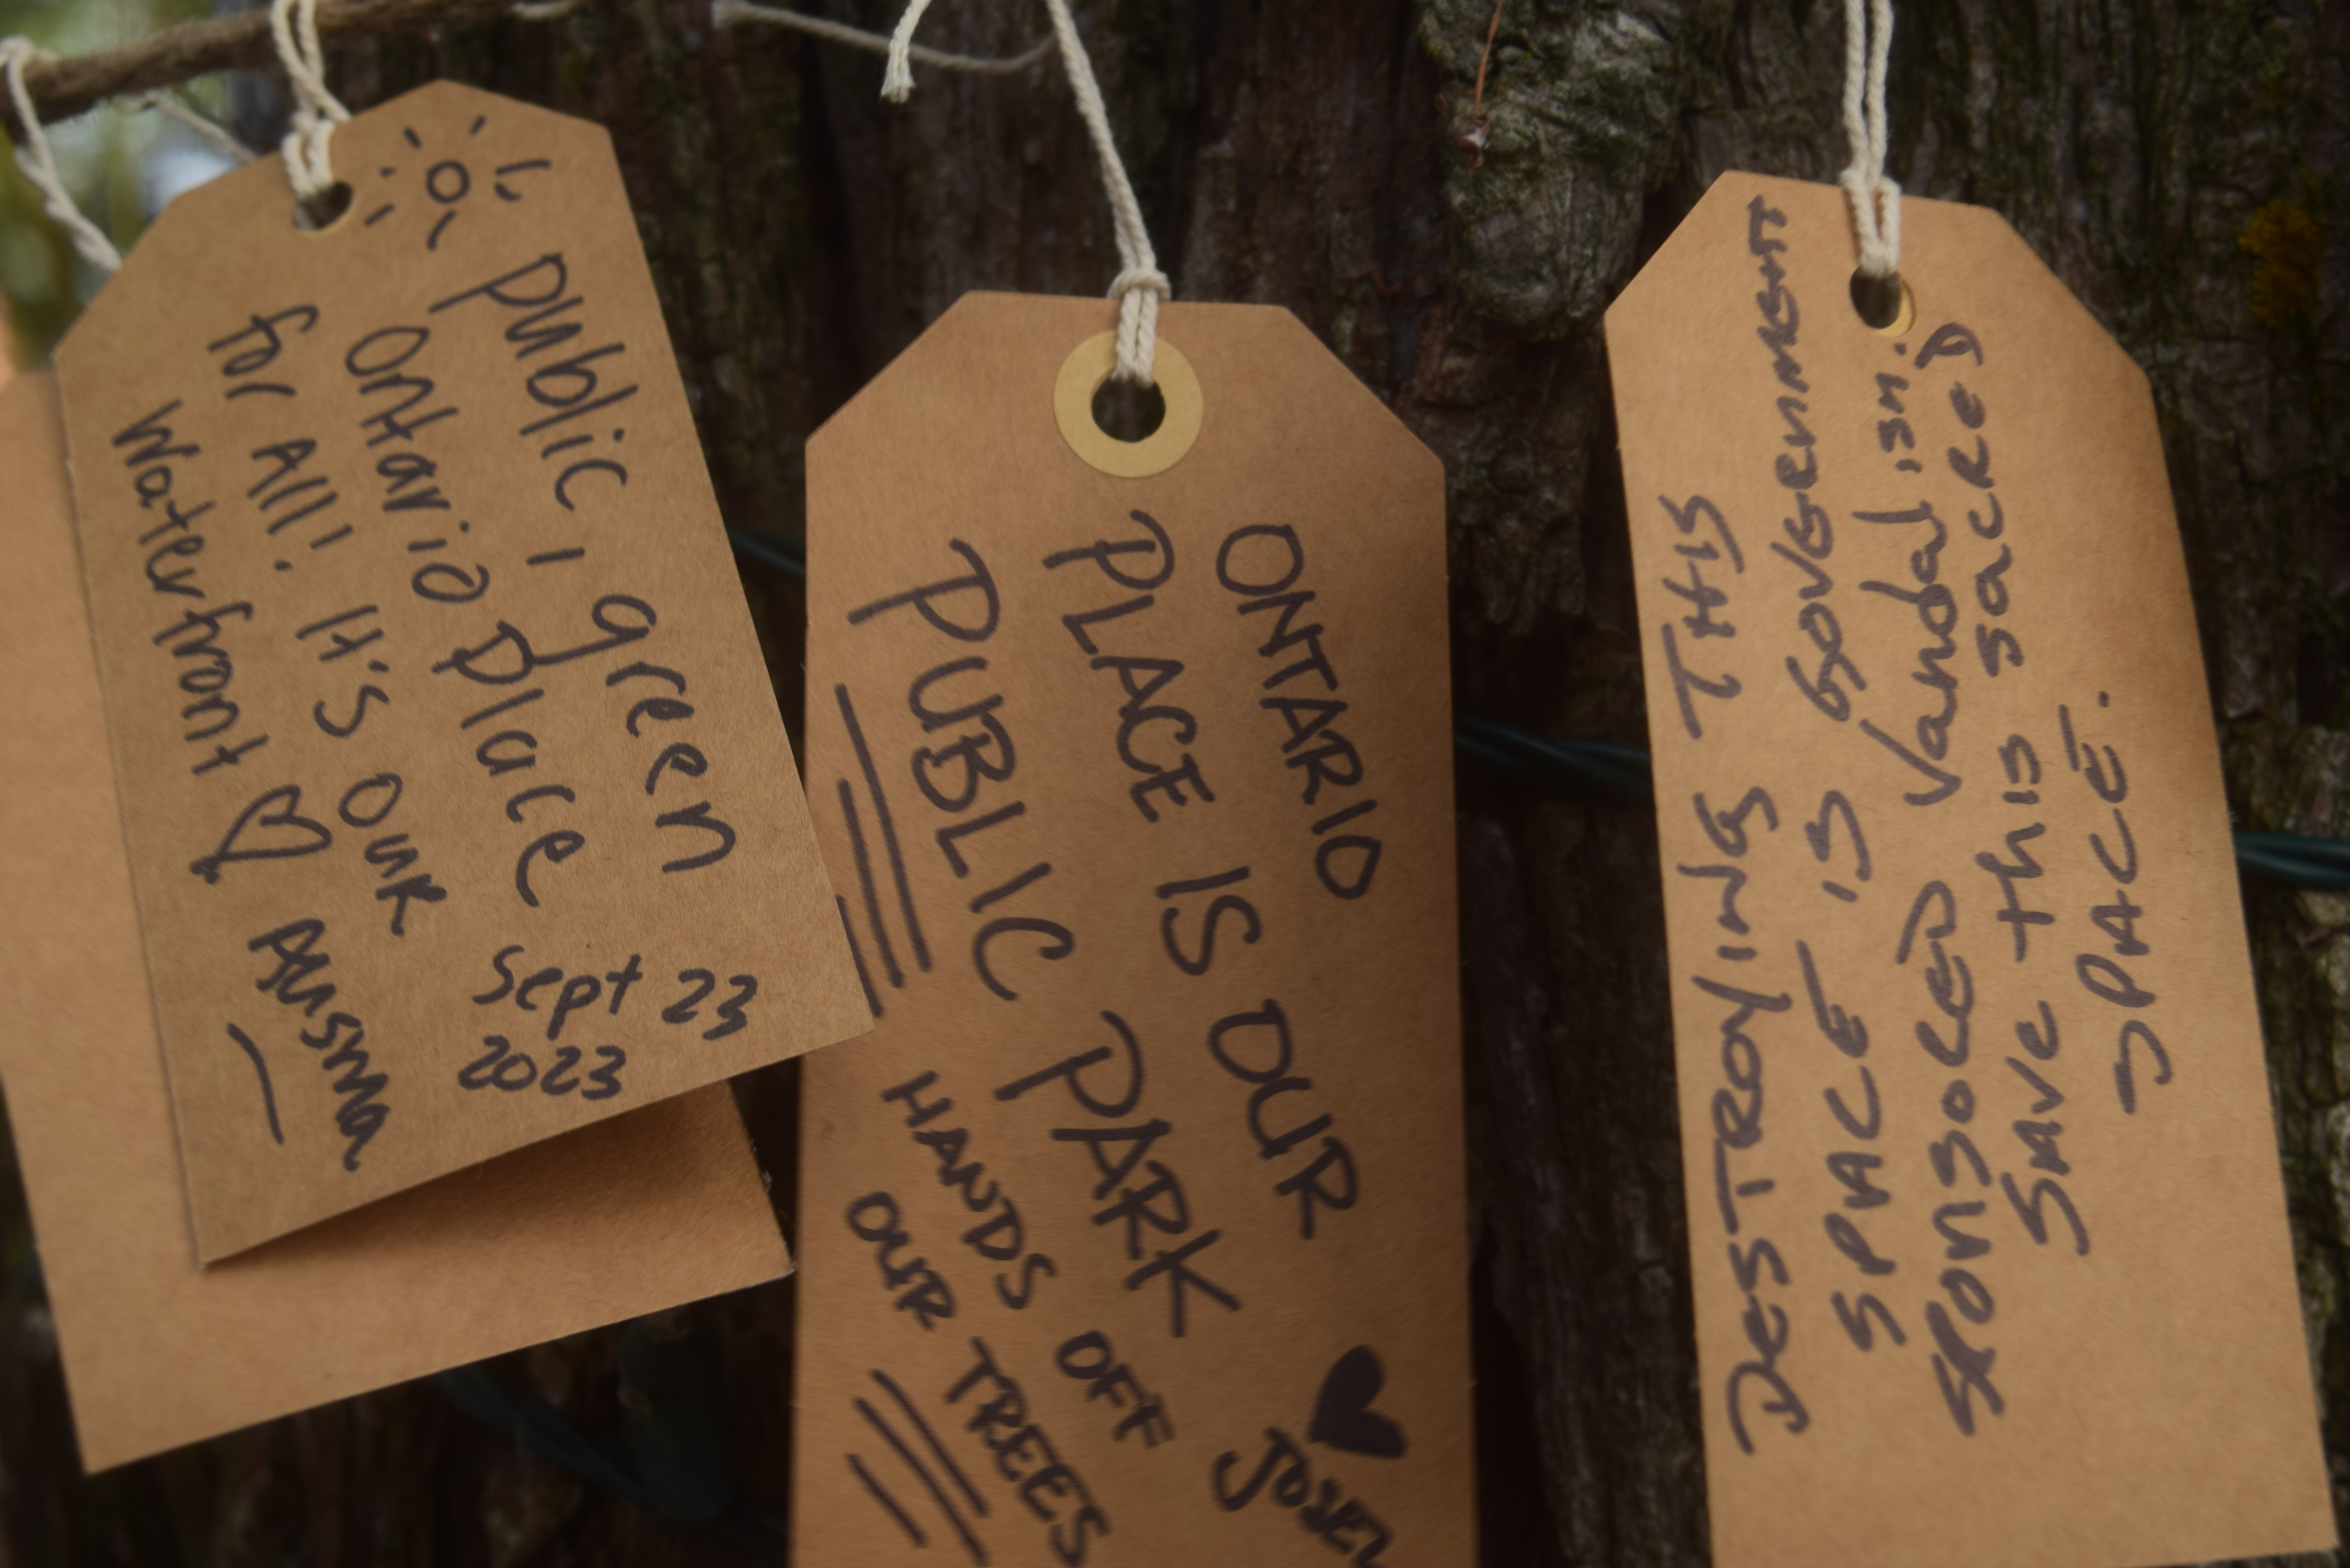 Public, green
Ontario Place
for All! It's OUR
Waterfront ♡ Ausma
Sept 23
2023
ONTARIO
PLACE IS OUR
PUBLIC PARK
HANDS OFF
OUR TREES
DESTROYING THIS
SPACE IS GOVERNMENT
SPONSORED Vandalism.
Save this sacred
SPACE.